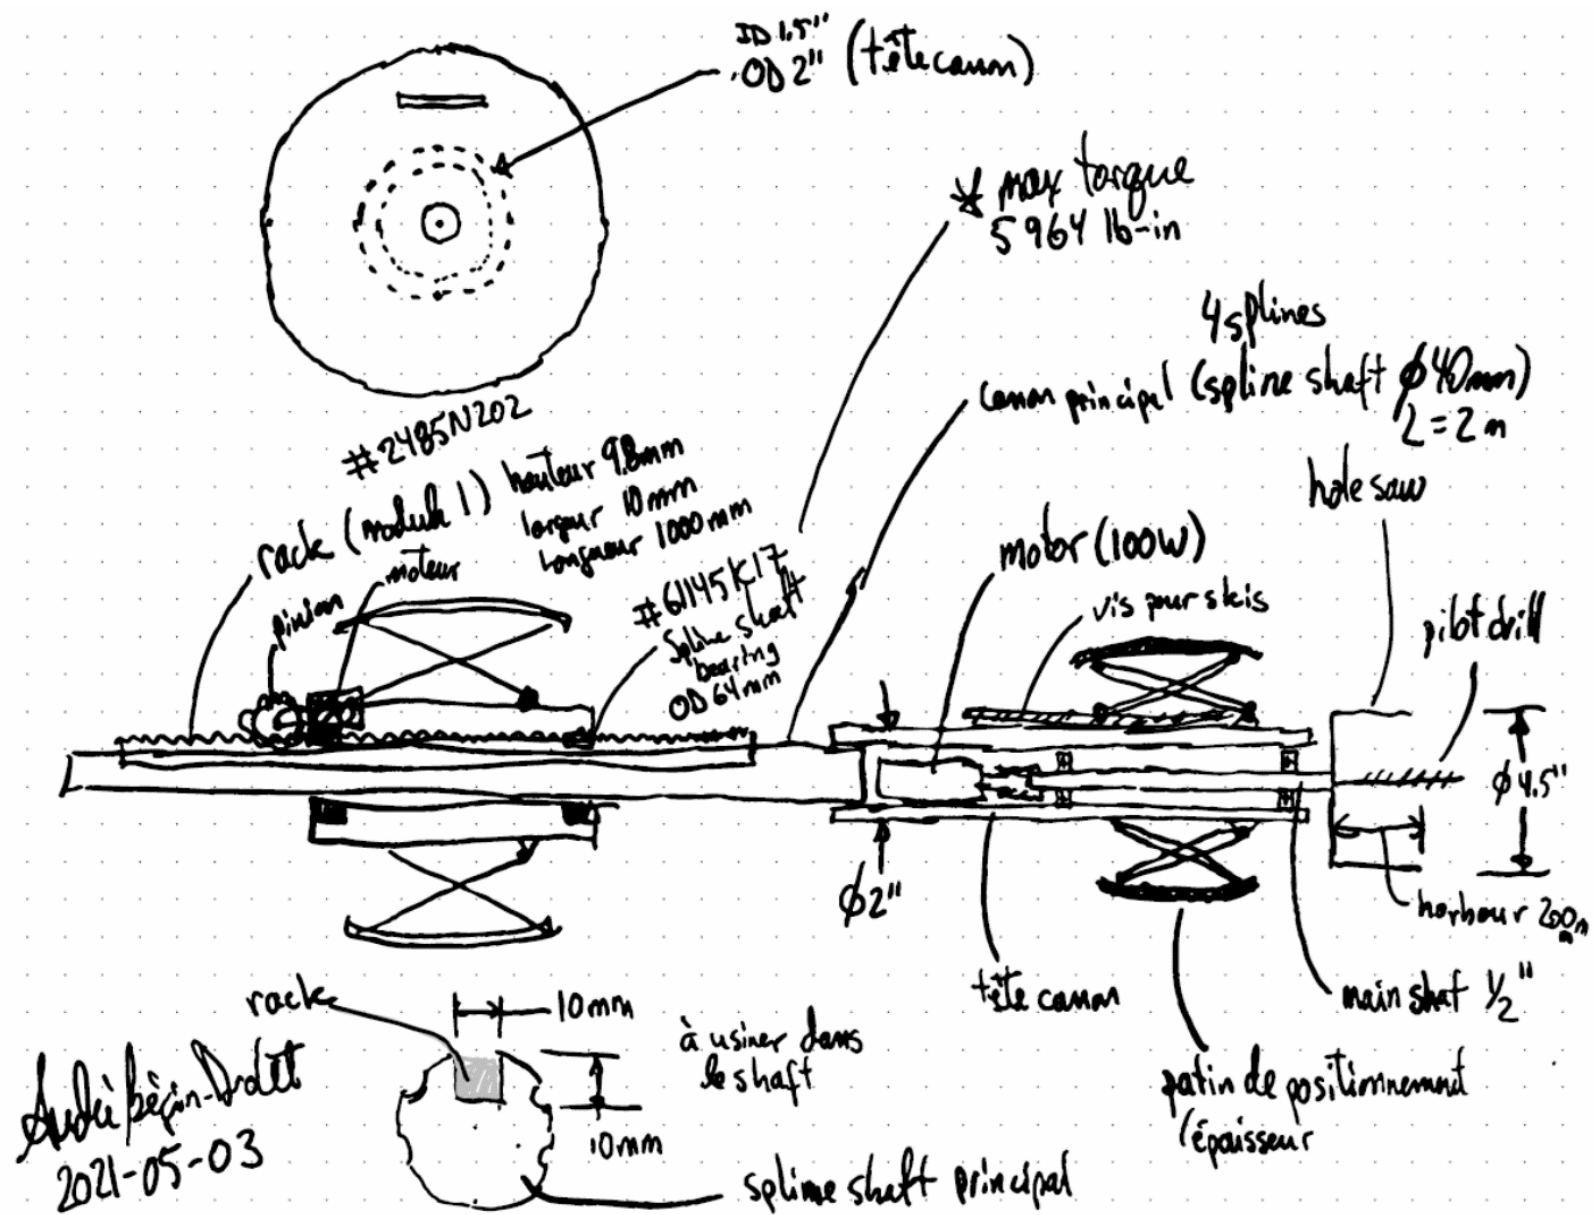 ID 1.5"
OD 2" (tête canon)
* max torque
5964 lb-in
4 splines
canon principal (spline shaft ϕ40mm)
L=2m
#2485N202
rack (module 1) hauteur 9.8mm
largeur 10mm
longueur 1000mm
moteur
pinion
#61145K17
Spline shaft
bearing
OD 64mm
motor (100W)
vis pour skis
hole saw
pilot drill
ϕ4.5"
ϕ2"
horbour 200m
m
tête canon
main shaf 1/2"
patin de positionnement
(épaisseur
rack
10mm
à usiner dans
le shaft
10mm
spline shaft principal
2021-05-03